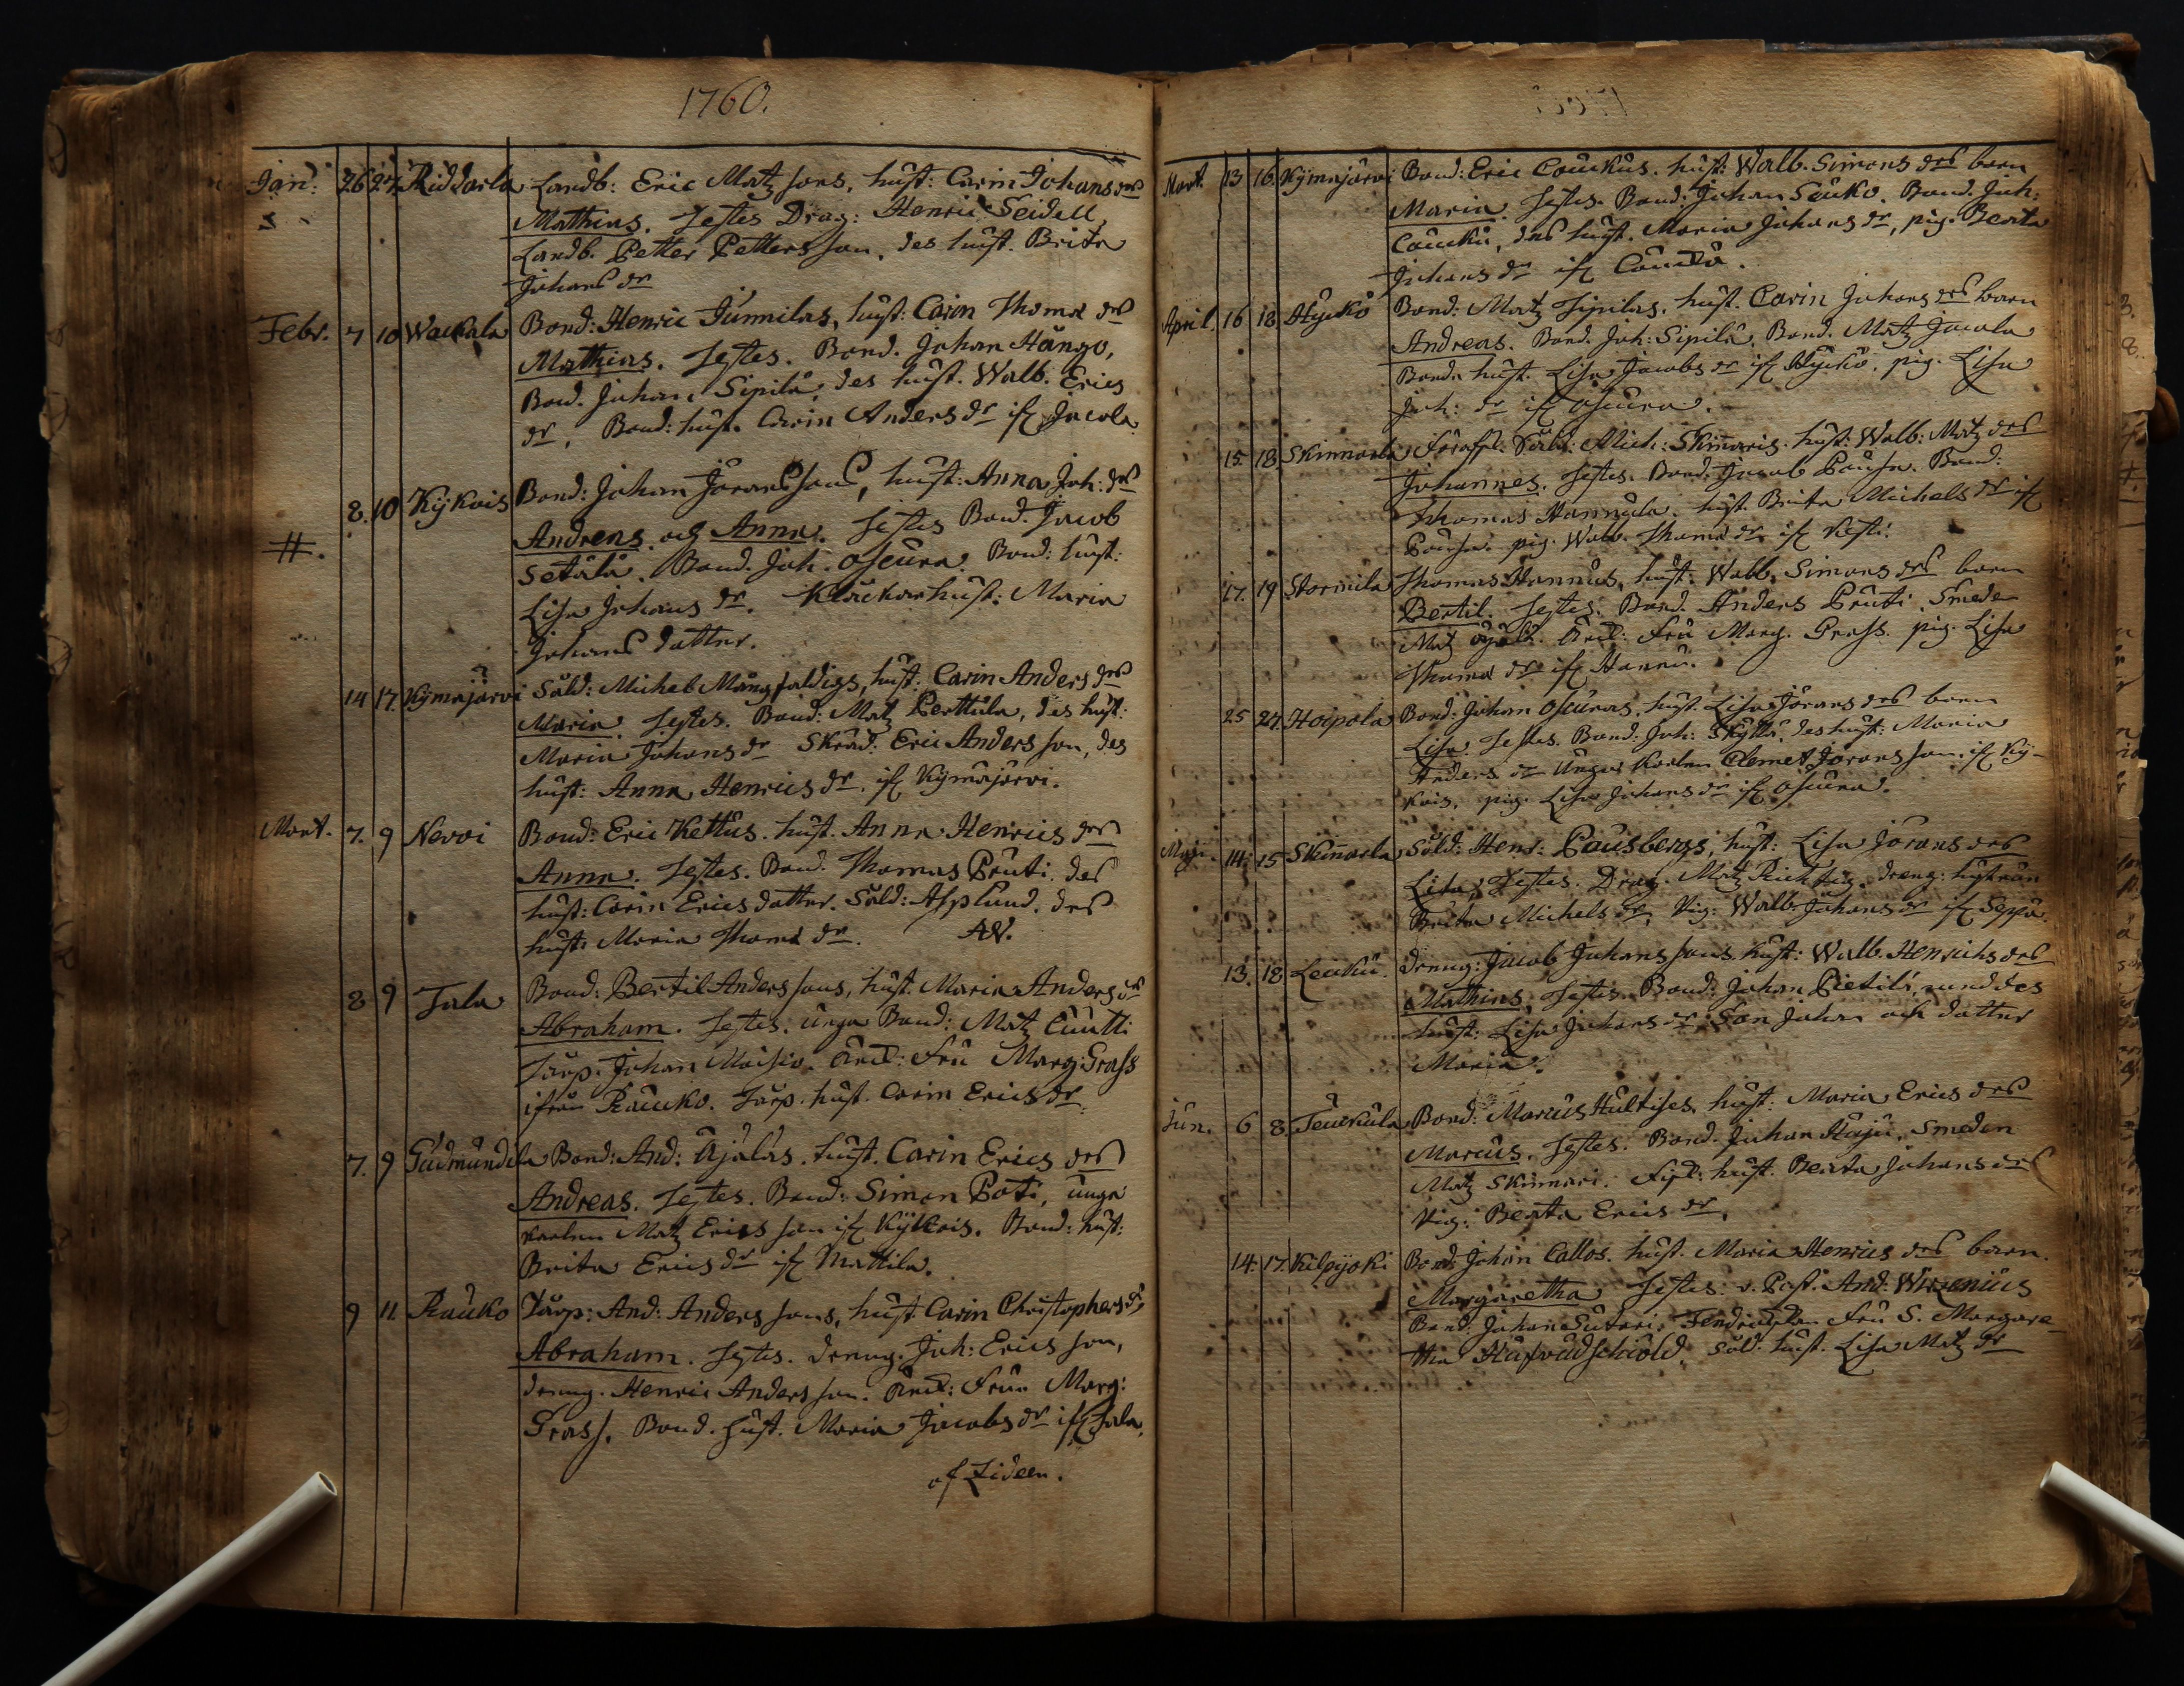 1760.
Jan: 26 27 Riddarla Landb: Eric Matz sons, hust: Carin Johans drs
Mathias. Testes Drag: Henric Seidell
Landb. Petter Petters son, des hust. Brita
Johans dr
Febr. 7 10 Wackala Bond: Henric Junnilas, hust: Carin Thomæ drs
Mathias. Testes. Bond. Johan Hängo,
Bond. Johan Sipilä, des hust. Walb. Erics
dr, Bond: hust. Carin Anders dr if Jacola
8. 10 Kykois Bond: Johan Jörans sons, hust: Anna Joh: drs
Andreas och Anna. Testes Bond. Jacob
Setälä. Bond. Joh. Oscura. Bond: hust:
Lisa Johans dr. Klåckar hust: Maria
Johans dotter.
14 17. Kymäjärvi Såld: Michel Mångfaldigs, hust: Carin Anders drs
Maria. Testes. Bond: Matz Perttula, des hust:
Maria Johans dr Skräd: Eric Anders son, des
hust: Anna Henrics dr. if Kymäjärvi.
Mart. 7. 9 Nevoi Bond: Eric Kettus. hust. Anna Henrics drs
Anna. Testes. Bond. Thomas Pruti. des
hust: Carin Erics dotter. Såld: Asplund. des
hust: Maria Thomæ dr.
8 9 Tala Bond: Bertil Anders sons, hust: Maria Anders drs
Abraham. Testes. unga Bond: Matz
Torp. Johan Moisio. Fru Marg: Grass
ifrån Rauko. Torp. hust. Carin Erics dr.
7. 9 Gudmundila Bond: And: Ajalas. hust. Carin Erics drs
Andreas. Testes. Bond: Simon Poti, unga
karlen Matz Erics son if Kykois. Bond: hust:
Brita Erics dr if Mattila.
9 11. Rauko Torp: And: Anders sons, hust Carin Christophers dr
Abraham. Testes. dreng. Joh: Erics son,
dreng. Henric Anders son. Fru Marg:
Grass. Bond. hust. Maria Jacobs dr if Tala.
af Lideen.
Mart. 13 16. Kymäjärvi Bond: Eric Couckus. hust: Walb. Simons drs barn
Maria. Testes. Bond: Johan Seuko. Bond. Joh:
Coucku, des hust. Maria Johans dr, pig. Beata
Johans dr if
April. 16 18 Hyckö Bond: Matz Sipilas, hust. Carin Johans drs barn
Andreas. Bond. Joh: Sipilä, Bond. Matz Jacola
Bonde hust. Lisa Jacobs dr if Hyckö. pig. Lisa
Joh: dr if Oscura.
15. 18. Skinnarla Mich: Skinnaris. hust: Walb: Matz drs
Johannes. Testes. Bond: Jacob Pausa. Bond:
Thomas Hannula. hust. Brita Michels dr if
Pausa. pig. Walb. Thomæ dr if
17. 19 Stormila Thomas Hannus, hust: Walb: Simons drs barn
Bertil. Testes. Bond. Anders Pruti. Smeden
Matz Fru Marg. Grass. pig. Lisa
Thomæ dr if Hannu.
25 27. Hoipola Bond: Johan Oscuras. hust. Lisa Jörans drs barn
Lisa. Testes. Bond: Joh: Skyttä, des hust: Maria
Anders dr Unga karlen Clemet Jörans son if Ky-
kois, pig. Lisa Johans dr if Oscura.
Maji. 14. 15 Skinnarla Såld: Henr: Pausbergs, hust: Lisa Jörans drs
Lisa. Testes. Drag: Matz Ricktig. dreng: hustrun
Brita Michels dr, Pig: Walb. Johans dr if Seppä.
13. 18. Leuku dreng: Jacob Johans sons, hust: Walb. Henrichs drs
Mathias. Testes. Bond: Johan Pietilä, med des
hust: Lisa Johans dr. Son Johan och dotter
Maria.
Jun. 6 8. Teuerula Bond. Marcus Hultises, hust: Maria Erics drs
Marcus. Testes. Bond. Johan Haju. Smeden
Matz Skinnari. hust. Beata Johans dr
Pig: Beata Erics dr.
14. 17. Kilpijoki Bond: Johan Callos. hust. Maria Henrics drs barn.
Margaretha Testes: v. Past. And: Wirzenius
Bond: Johan Sutari. Fendr. Fru S. Margare-
tha Hufvudschiöld. Såld. hust. Lisa Matz dr